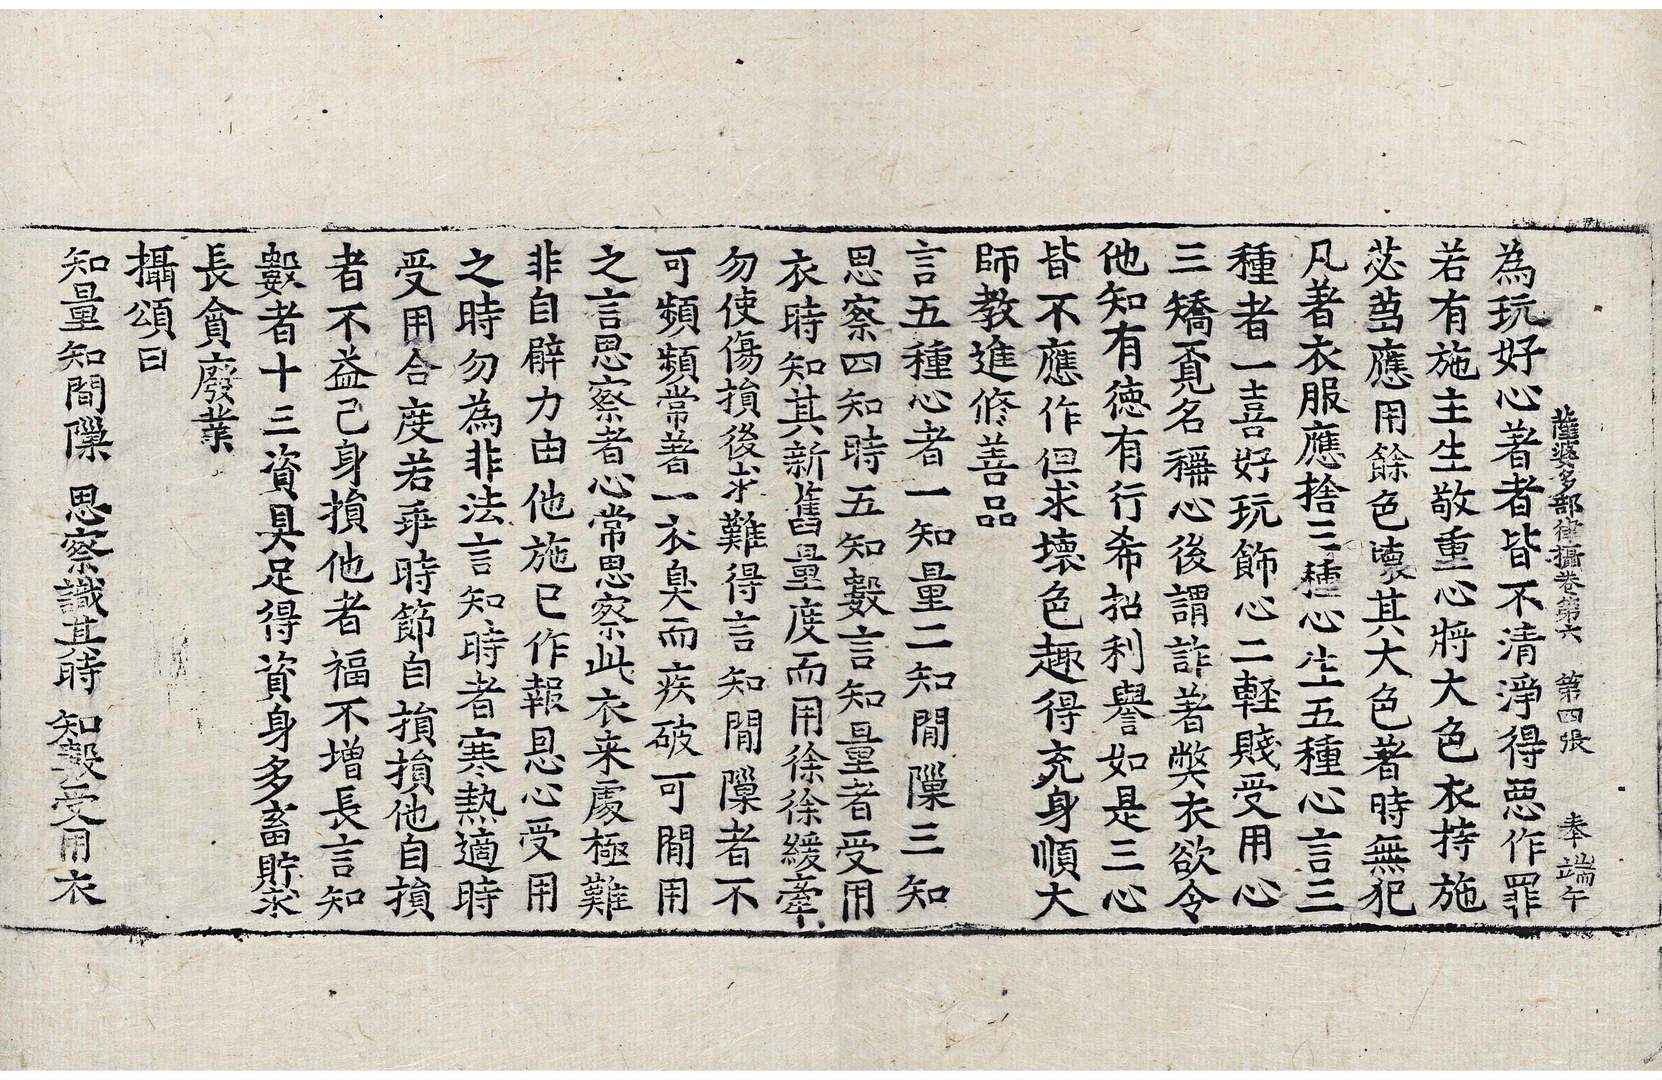 薩婆多部律攝卷第六 第四張 奉端午
為玩好心著者皆不清淨得惡作罪
若有施主生敬重心將大色衣持施
苾芻應用餘色壞其大色著時無犯
凡著衣服應捨三種心生五種心言三
種者一喜好玩飾心二輕賤受用心
三矯覓名稱心後謂詐著弊衣欲令
他知有德有行希招利譽如是三心
皆不應作但求壞色趣得充身順大
師教進修善品
言五種心者一知量二知間隟三知
思察四知時五知數言知量者受用
衣時知其新舊量度而用徐徐緩牽
勿使傷損後求難得言知間隟者不
可頻頻常著一衣臭而疾破可間用
之言思察者心常思察此衣来處極難
非自辟力由他施已作報恩心受用
之時勿為非法言知時者寒熱適時
受用合度若乖時節自損損他自損
者不益己身損他者福不增長言知
數者十三資具足得資身多畜貯求
長貪廢業
攝頌曰
知量知間隟 思察識其時 知數受用衣